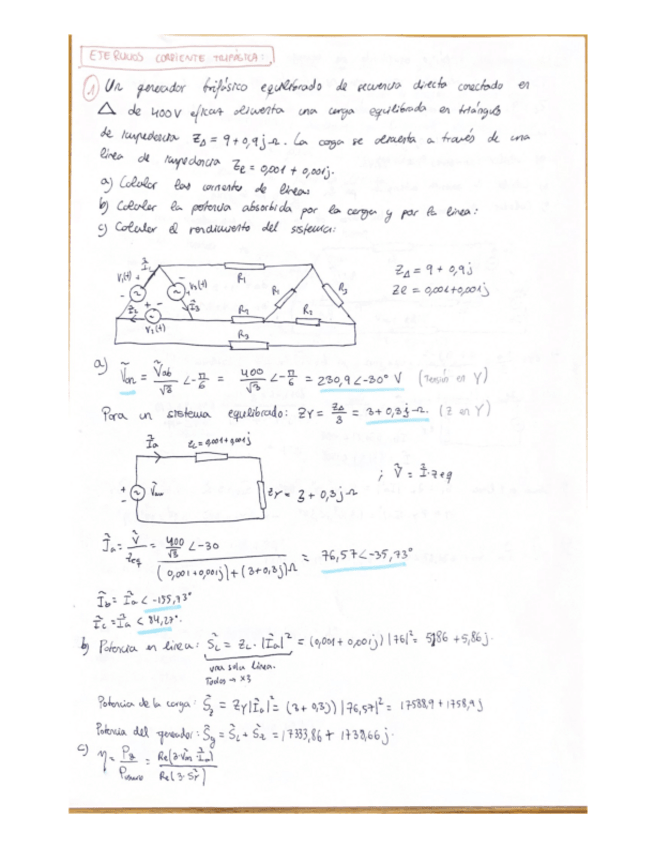 EJERCICIOS CORRIENTE TRIFÁSICA:
1 Un generador trifásico equilibrado de secuencia directa conectado en
△ de 400V eficaz alimenta una carga equilibrada en triángulo
de impedancia Z△ = 9 + 0,9j Ω. La carga se alimenta a través de una
línea de impedancia Zl = 0,001 + 0,001j.
a) Calcular las corrientes de líneas
b) Calcular la potencia absorbida por la carga y por la línea:
c) Calcular el rendimiento del sistema:
Z△ = 9 + 0,9j
Zl = 0,001 + 0,001j
V1(t) + - Ĩ1 R1
- V3(t) + Ĩ3 R1 R3
Ĩ2 + - V2(t) R2 R2
R3
a) Ṽan = Ṽab/√3 ∠-π/6 = 400/√3 ∠-π/6 = 230,9∠-30° V (Tensión en Y)
Para un sistema equilibrado: ZY = Z△/3 = 3 + 0,3j Ω. (Z en Y)
Ĩa ZL = 0,001 + 0,001j
+ - Ṽan ZY = 3 + 0,3j Ω ; Ṽ = Ĩ·Zeq
Ĩa = Ṽ/Zeq = 400/√3 ∠-30 / (0,001 + 0,001j) + (3 + 0,3j)Ω = 76,57∠-35,73°
Ĩb = Ĩa ∠-155,73°
Ĩc = Ĩa ∠ 84,27°.
b) Potencia en línea: S̃L = ZL · |Ĩa|² = (0,001 + 0,001j) |76|² = 5,86 + 5,86j.
una sola línea.
Todas → x3
Potencia de la carga: S̃z = ZY|Ĩa|² = (3 + 0,3j) |76,57|² = 17588,9 + 1758,9j
Potencia del generador: S̃g = S̃L + S̃z = 17333,86 + 1738,66j.
c) η = / = Re(3·Ṽan Ĩa) / Re(3·S̃)